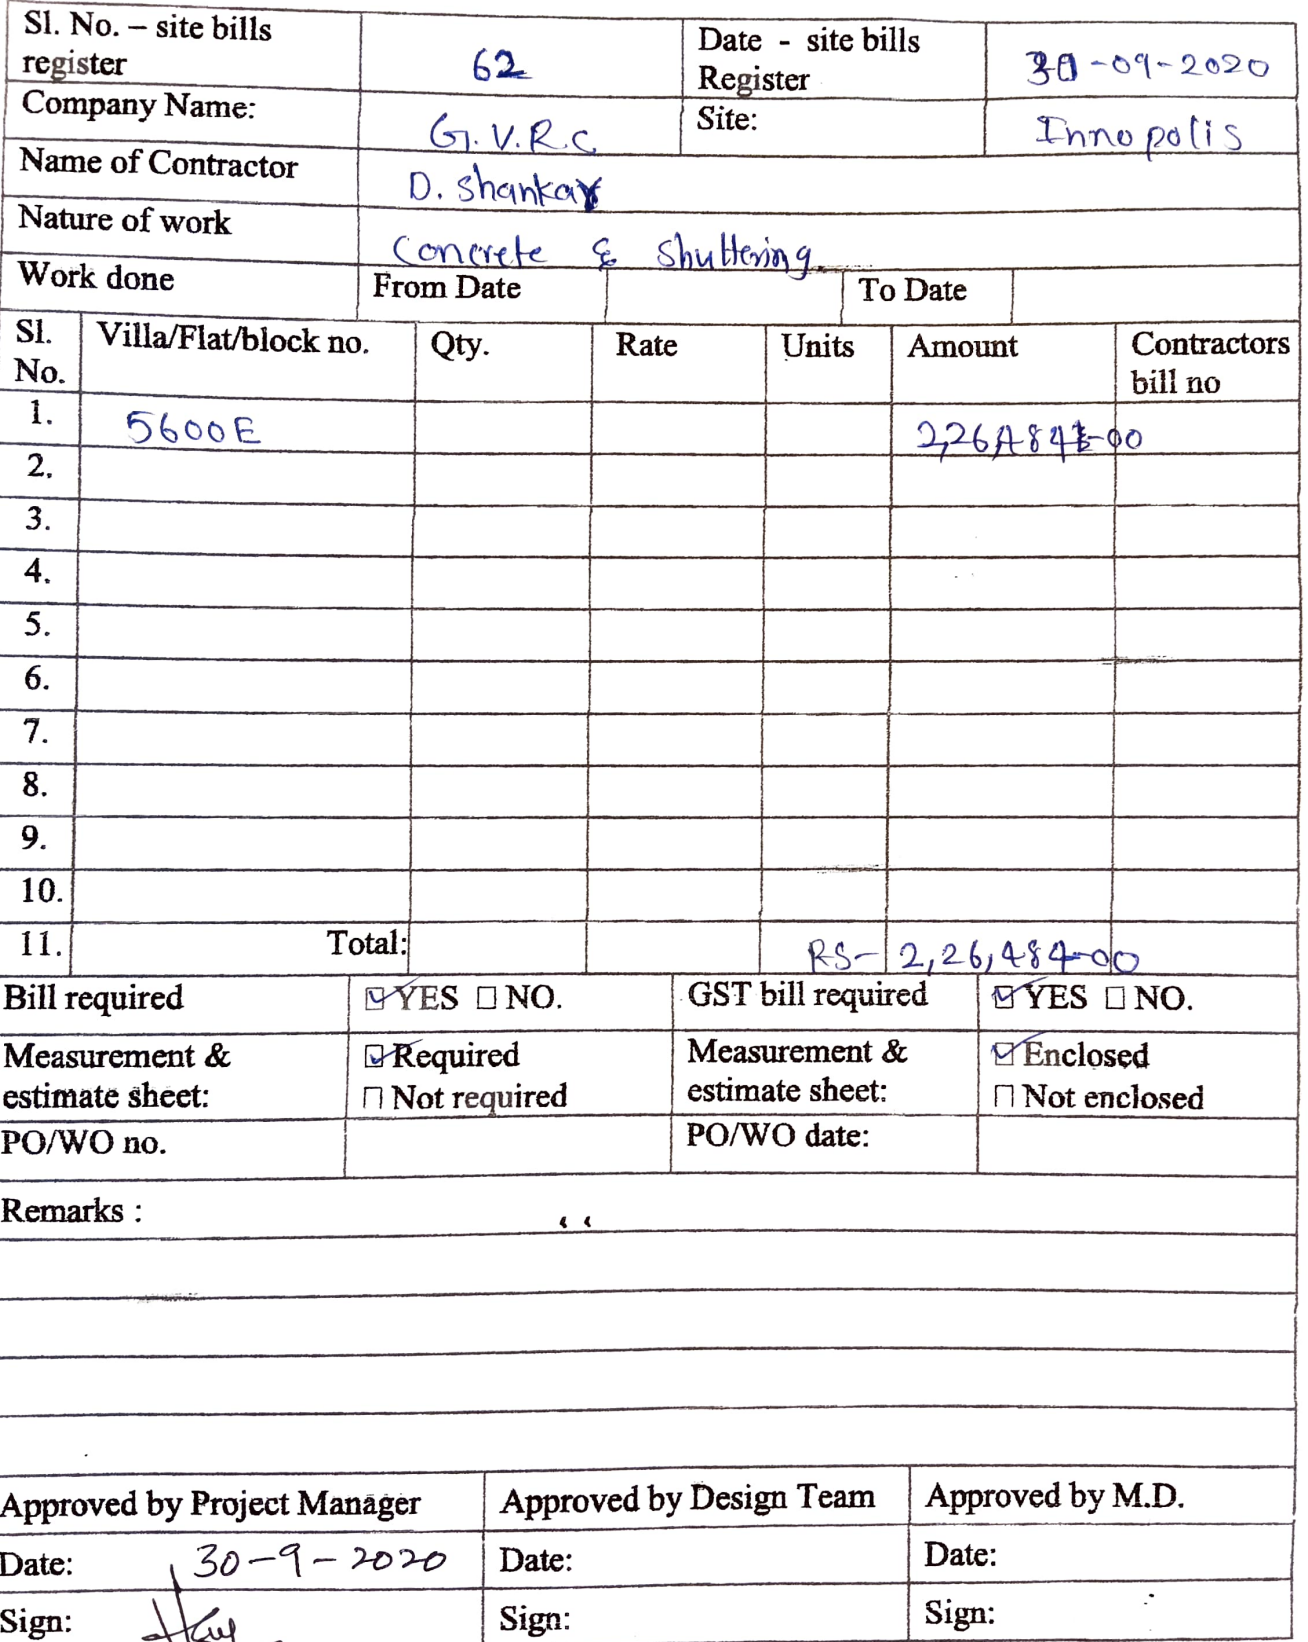 Sl. No. – site bills register 62 Date - site bills Register 30-09-2020
Company Name: G.V.R.C Site: Innopolis
Name of Contractor D. Shankar
Nature of work Concrete & Shuttering
Work done From Date To Date
Sl. No. Villa/Flat/block no. Qty. Rate Units Amount Contractors bill no
1. 5600E
2.
3.
4.
5.
6.
7.
8.
9.
10.
11. Total: RS- 2,26,484-00
Bill required ☑ YES ☐ NO. GST bill required ☑ YES ☐ NO.
Measurement & estimate sheet: ☑ Required ☐ Not required Measurement & estimate sheet: ☑ Enclosed ☐ Not enclosed
PO/WO no. PO/WO date:
Remarks :
Approved by Project Manager Approved by Design Team Approved by M.D.
Date: 30-9-2020 Date: Date:
Sign: Sign: Sign: